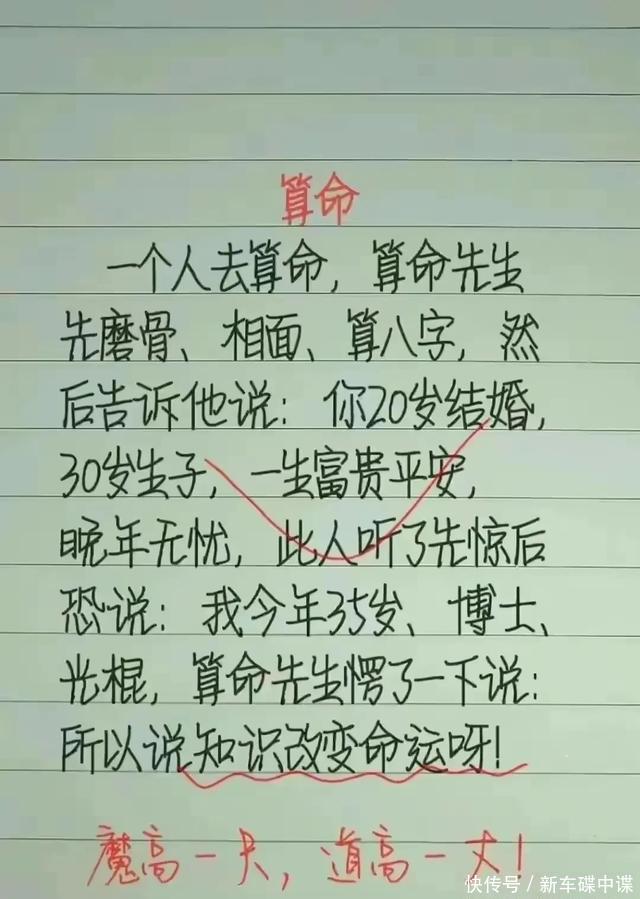 算命
一个人去算命，算命先生
先磨骨、相面、算八字，然
后告诉他说：你20岁结婚，
30岁生子，一生富贵平安，
晚年无忧，此人听了先惊后
恐说：我今年35岁、博士、
光棍，算命先生愣了一下说：
所以说知识改变命运呀！
魔高一尺，道高一丈！
快传号／新车碟中谍